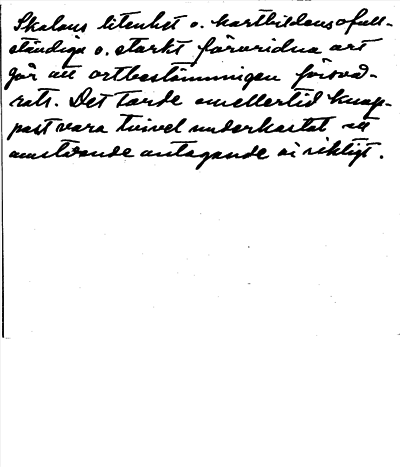 Skalans litenhet o. kartbildens ofull-
ständiga o. starkt förvridna art
gör att ortbestämningen försvå-
rats. Det torde emellertid knap-
past vara tvivel underkastat att
antagande är riktigt.